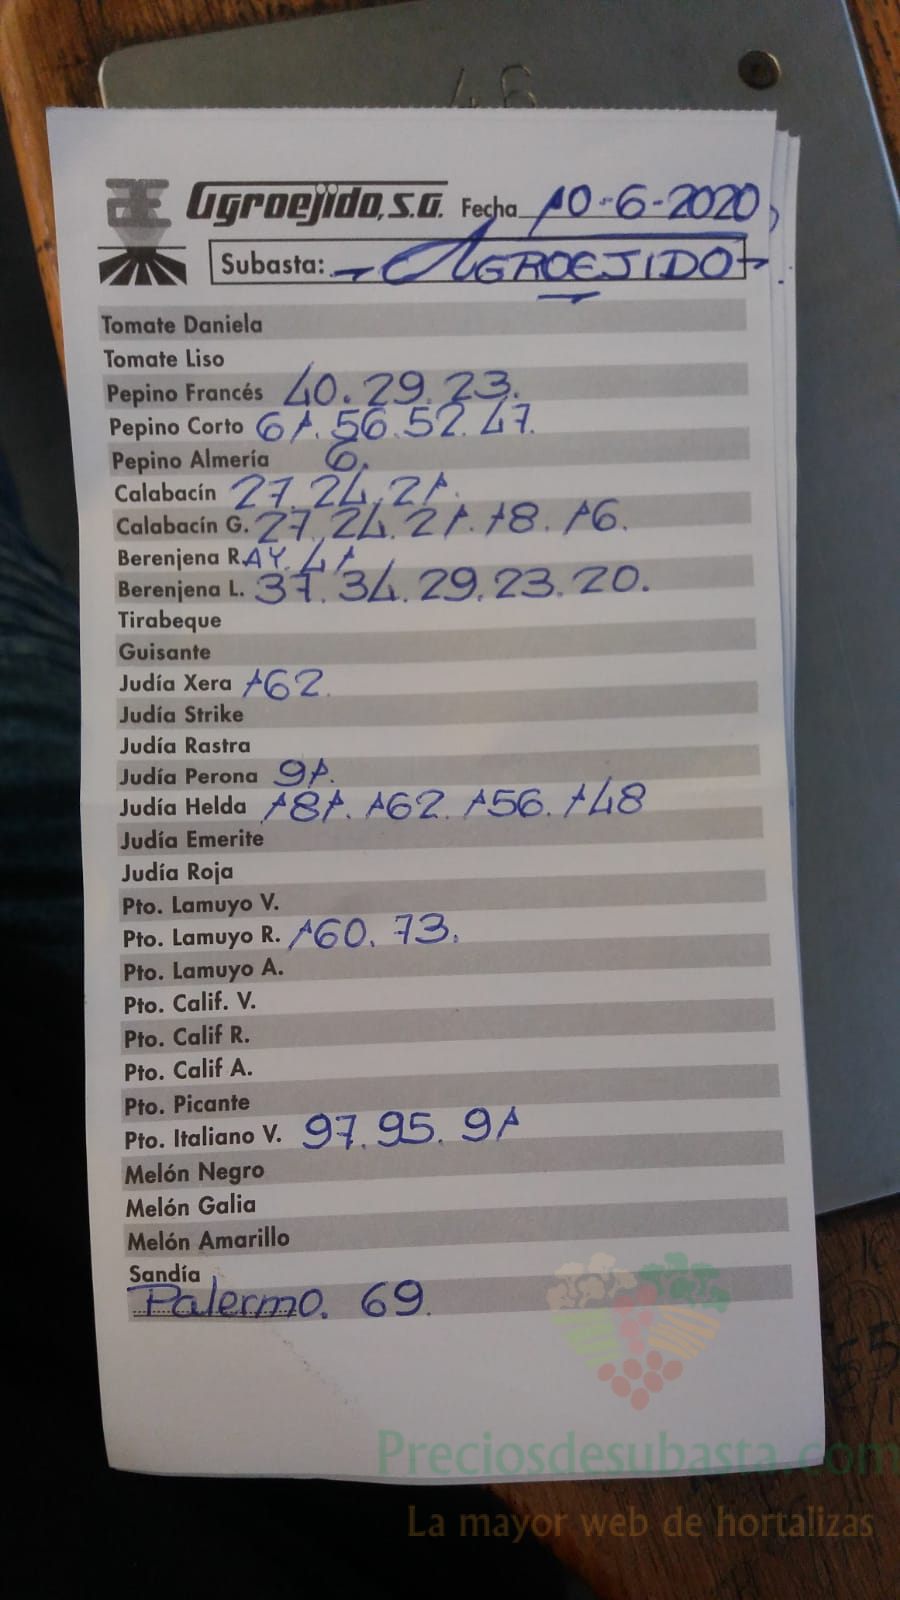 46
Agroejido, S.A. Fecha 10-6-2020
Subasta: AGROEJIDO
Tomate Daniela
Tomate Liso
Pepino Francés 40. 29. 23.
Pepino Corto 61. 56. 52. 47.
Pepino Almería 6.
Calabacín 27. 24. 21.
Calabacín G. 27. 24. 21. 18. 16.
Berenjena R.AY. 41
Berenjena L. 37. 34. 29. 23. 20.
Tirabeque
Guisante
Judía Xera 162.
Judía Strike
Judía Rastra
Judía Perona 91.
Judía Helda 181. 162. 156. 148
Judía Emerite
Judía Roja
Pto. Lamuyo V.
Pto. Lamuyo R. 160. 73.
Pto. Lamuyo A.
Pto. Calif. V.
Pto. Calif R.
Pto. Calif A.
Pto. Picante
Pto. Italiano V. 97. 95. 91
Melón Negro
Melón Galia
Melón Amarillo
Sandía
Palermo. 69.
Preciosdesubasta.com
La mayor web de hortalizas